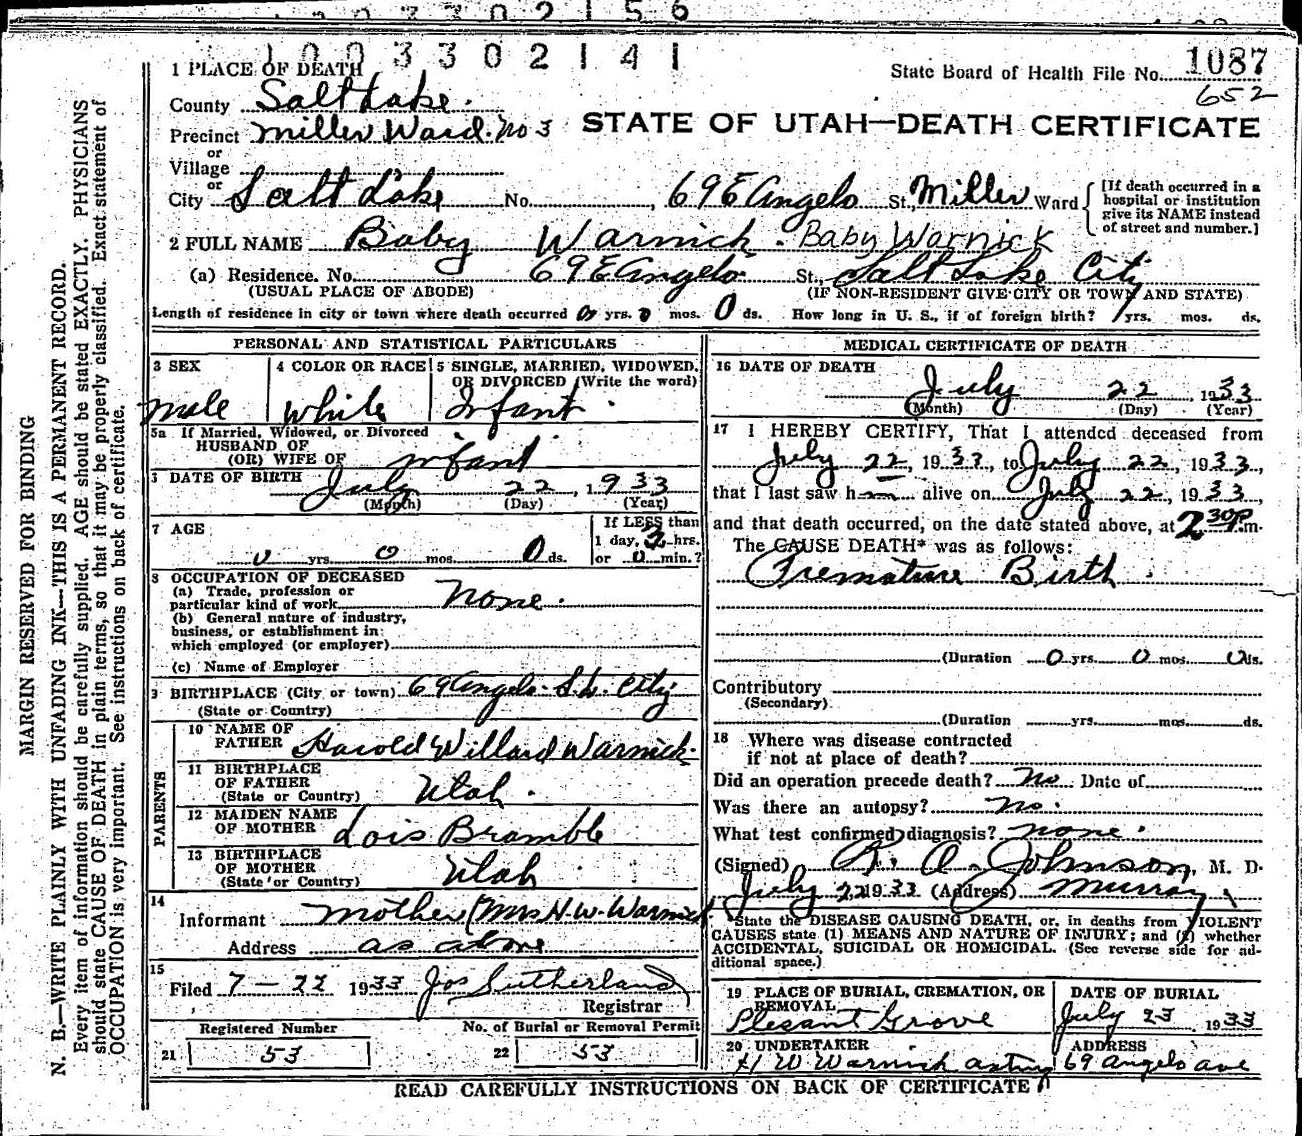 1003302156
1003302141
1 PLACE OF DEATH
State Board of Health File No. 1087
652
County Salt Lake.
Precinct Miller Ward. No 3
STATE OF UTAH—DEATH CERTIFICATE
or
Village
or
City Salt Lake No. , 69 E Angelo St., Miller Ward
[If death occurred in a
hospital or institution
give its NAME instead
of street and number.]
2 FULL NAME Baby Warnick. Baby Warnick
(a) Residence. No. 69 E Angelo St., Salt Lake City
(USUAL PLACE OF ABODE) (IF NON-RESIDENT GIVE CITY OR TOWN AND STATE)
Length of residence in city or town where death occurred 0 yrs. 0 mos. 0 ds. How long in U. S., if of foreign birth? yrs. mos. ds.
PERSONAL AND STATISTICAL PARTICULARS
3 SEX 4 COLOR OR RACE 5 SINGLE, MARRIED, WIDOWED,
OR DIVORCED (Write the word)
male white Infant.
5a If Married, Widowed, or Divorced
HUSBAND OF
(OR) WIFE OF infant
DATE OF BIRTH July 22, 1933
(Month) (Day) (Year)
7 AGE
If LESS than
1 day, 2 hrs.
0 yrs. 0 mos. 0 ds. or 0 min.?
8 OCCUPATION OF DECEASED
(a) Trade, profession or
particular kind of work None.
(b) General nature of industry,
business, or establishment in
which employed (or employer)
(c) Name of Employer
9 BIRTHPLACE (City or town) 69 Angelo. S.L. City
(State or Country)
PARENTS
10 NAME OF
FATHER Harold Willard Warnick.
11 BIRTHPLACE
OF FATHER
(State or Country) Utah.
12 MAIDEN NAME
OF MOTHER Lois Bramble
13 BIRTHPLACE
OF MOTHER
(State or Country) Utah
14
Informant Mother (Mrs H. W. Warnick
Address as above
15
Filed 7-22 1933 Jos Sutherland
Registrar
Registered Number No. of Burial or Removal Permit
21 53 22 53
MEDICAL CERTIFICATE OF DEATH
16 DATE OF DEATH
July 22, 1933
(Month) (Day) (Year)
17 I HEREBY CERTIFY, That I attended deceased from
July 22, 1933, to July 22, 1933,
that I last saw h alive on July 22, 1933,
and that death occurred, on the date stated above, at 2 30 P m.
The CAUSE DEATH* was as follows:
Premature Birth.
(Duration 0 yrs. 0 mos. 0 ds.
Contributory
(Secondary)
(Duration yrs. mos. ds.
18 Where was disease contracted
if not at place of death?
Did an operation precede death? No Date of
Was there an autopsy? No.
What test confirmed diagnosis? none.
(Signed) R. A. Johnson, M. D.
July 22, 1933 (Address) Murray
*State the DISEASE CAUSING DEATH, or, in deaths from VIOLENT
CAUSES state (1) MEANS AND NATURE OF INJURY; and (2) whether
ACCIDENTAL, SUICIDAL OR HOMICIDAL. (See reverse side for ad-
ditional space.)
19 PLACE OF BURIAL, CREMATION, OR
REMOVAL
Plesant Grove
DATE OF BURIAL
July 23, 1933
20 UNDERTAKER
H W Warnick acting
ADDRESS
69 Angelo ave
READ CAREFULLY INSTRUCTIONS ON BACK OF CERTIFICATE
MARGIN RESERVED FOR BINDING
N. B.—WRITE PLAINLY WITH UNFADING INK—THIS IS A PERMANENT RECORD.
Every item of information should be carefully supplied. AGE should be stated EXACTLY. PHYSICIANS
should state CAUSE OF DEATH in plain terms, so that it may be properly classified. Exact statement of
OCCUPATION is very important. See instructions on back of certificate.